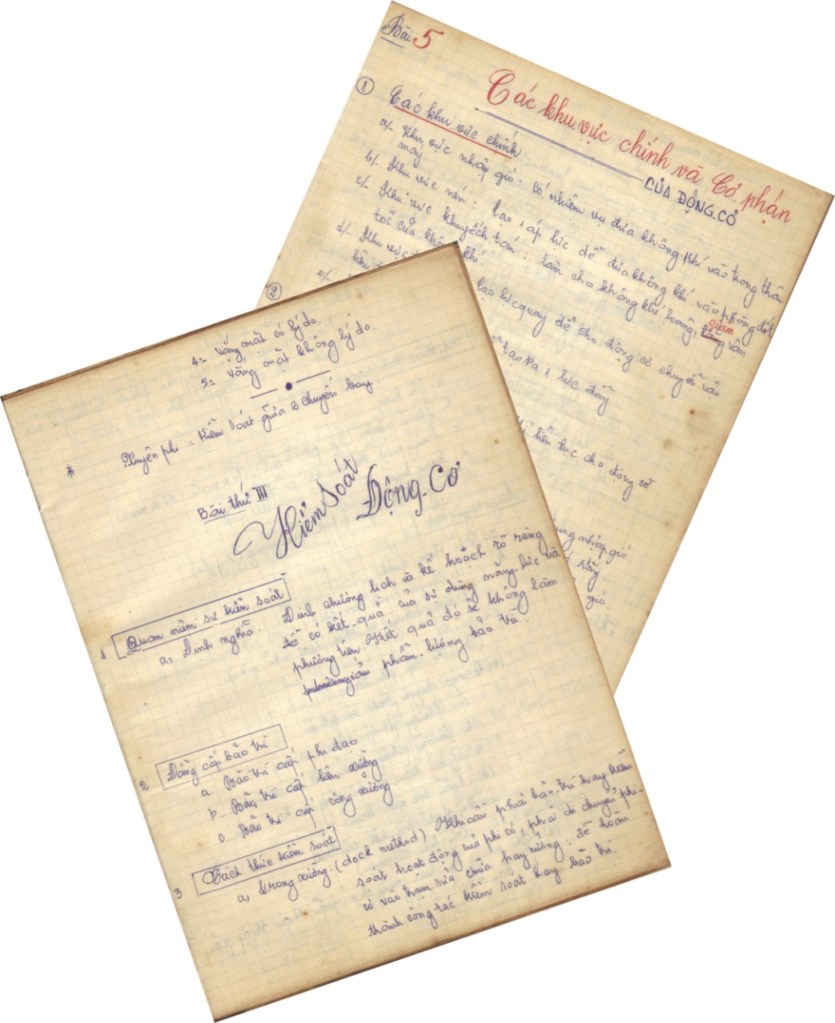 Bài 5
Các khu vực chính và Cơ phận
CỦA ĐỘNG CƠ
1 Các khu vực chính
a/- Khu vực nhập gió : có nhiệm vụ đưa không khí vào trong thân
máy
b/- Khu vực nén : tạo áp lực để đưa không khí vào phòng đốt
c/- Khu vực khuyếch tán : làm cho không khí loãng, giảm vận
tốc của không khí.
d/- Khu vực tạo lực quay để cho động cơ chuyển vận
2
e/- tạo ra 1 lực đẩy
liên tục cho động cơ
nhập gió
gió
4= Vắng mặt có lý do.
5= Vắng mặt không lý do.
* Xuyên phi = Kiểm soát giữa 2 chuyến bay
Bài thứ III
Kiểm Soát
Động-Cơ
1 Quan niệm sự kiểm soát
a, Định nghĩa. Định chương lịch và kế hoạch rõ ràng
để có kết quả của sử dụng năng lực và
phương tiện Kết quả đó sẽ không làm
giảm phẩm lượng bảo trì
2 Đẳng cấp bảo trì
a. Bảo trì cấp phi đạo
b. Bảo trì cấp liên xưởng
c. Bảo trì cấp công xưởng
3 Cách thức kiểm soát
a, trong xưởng : (dock method) Khi cần phải bảo trì hay kiểm
soát hoạt động mà phi cơ phải di chuyển phi-
cơ vào trạm sửa chữa hay xưởng để hoàn
thành công tác kiểm soát hay bảo trì